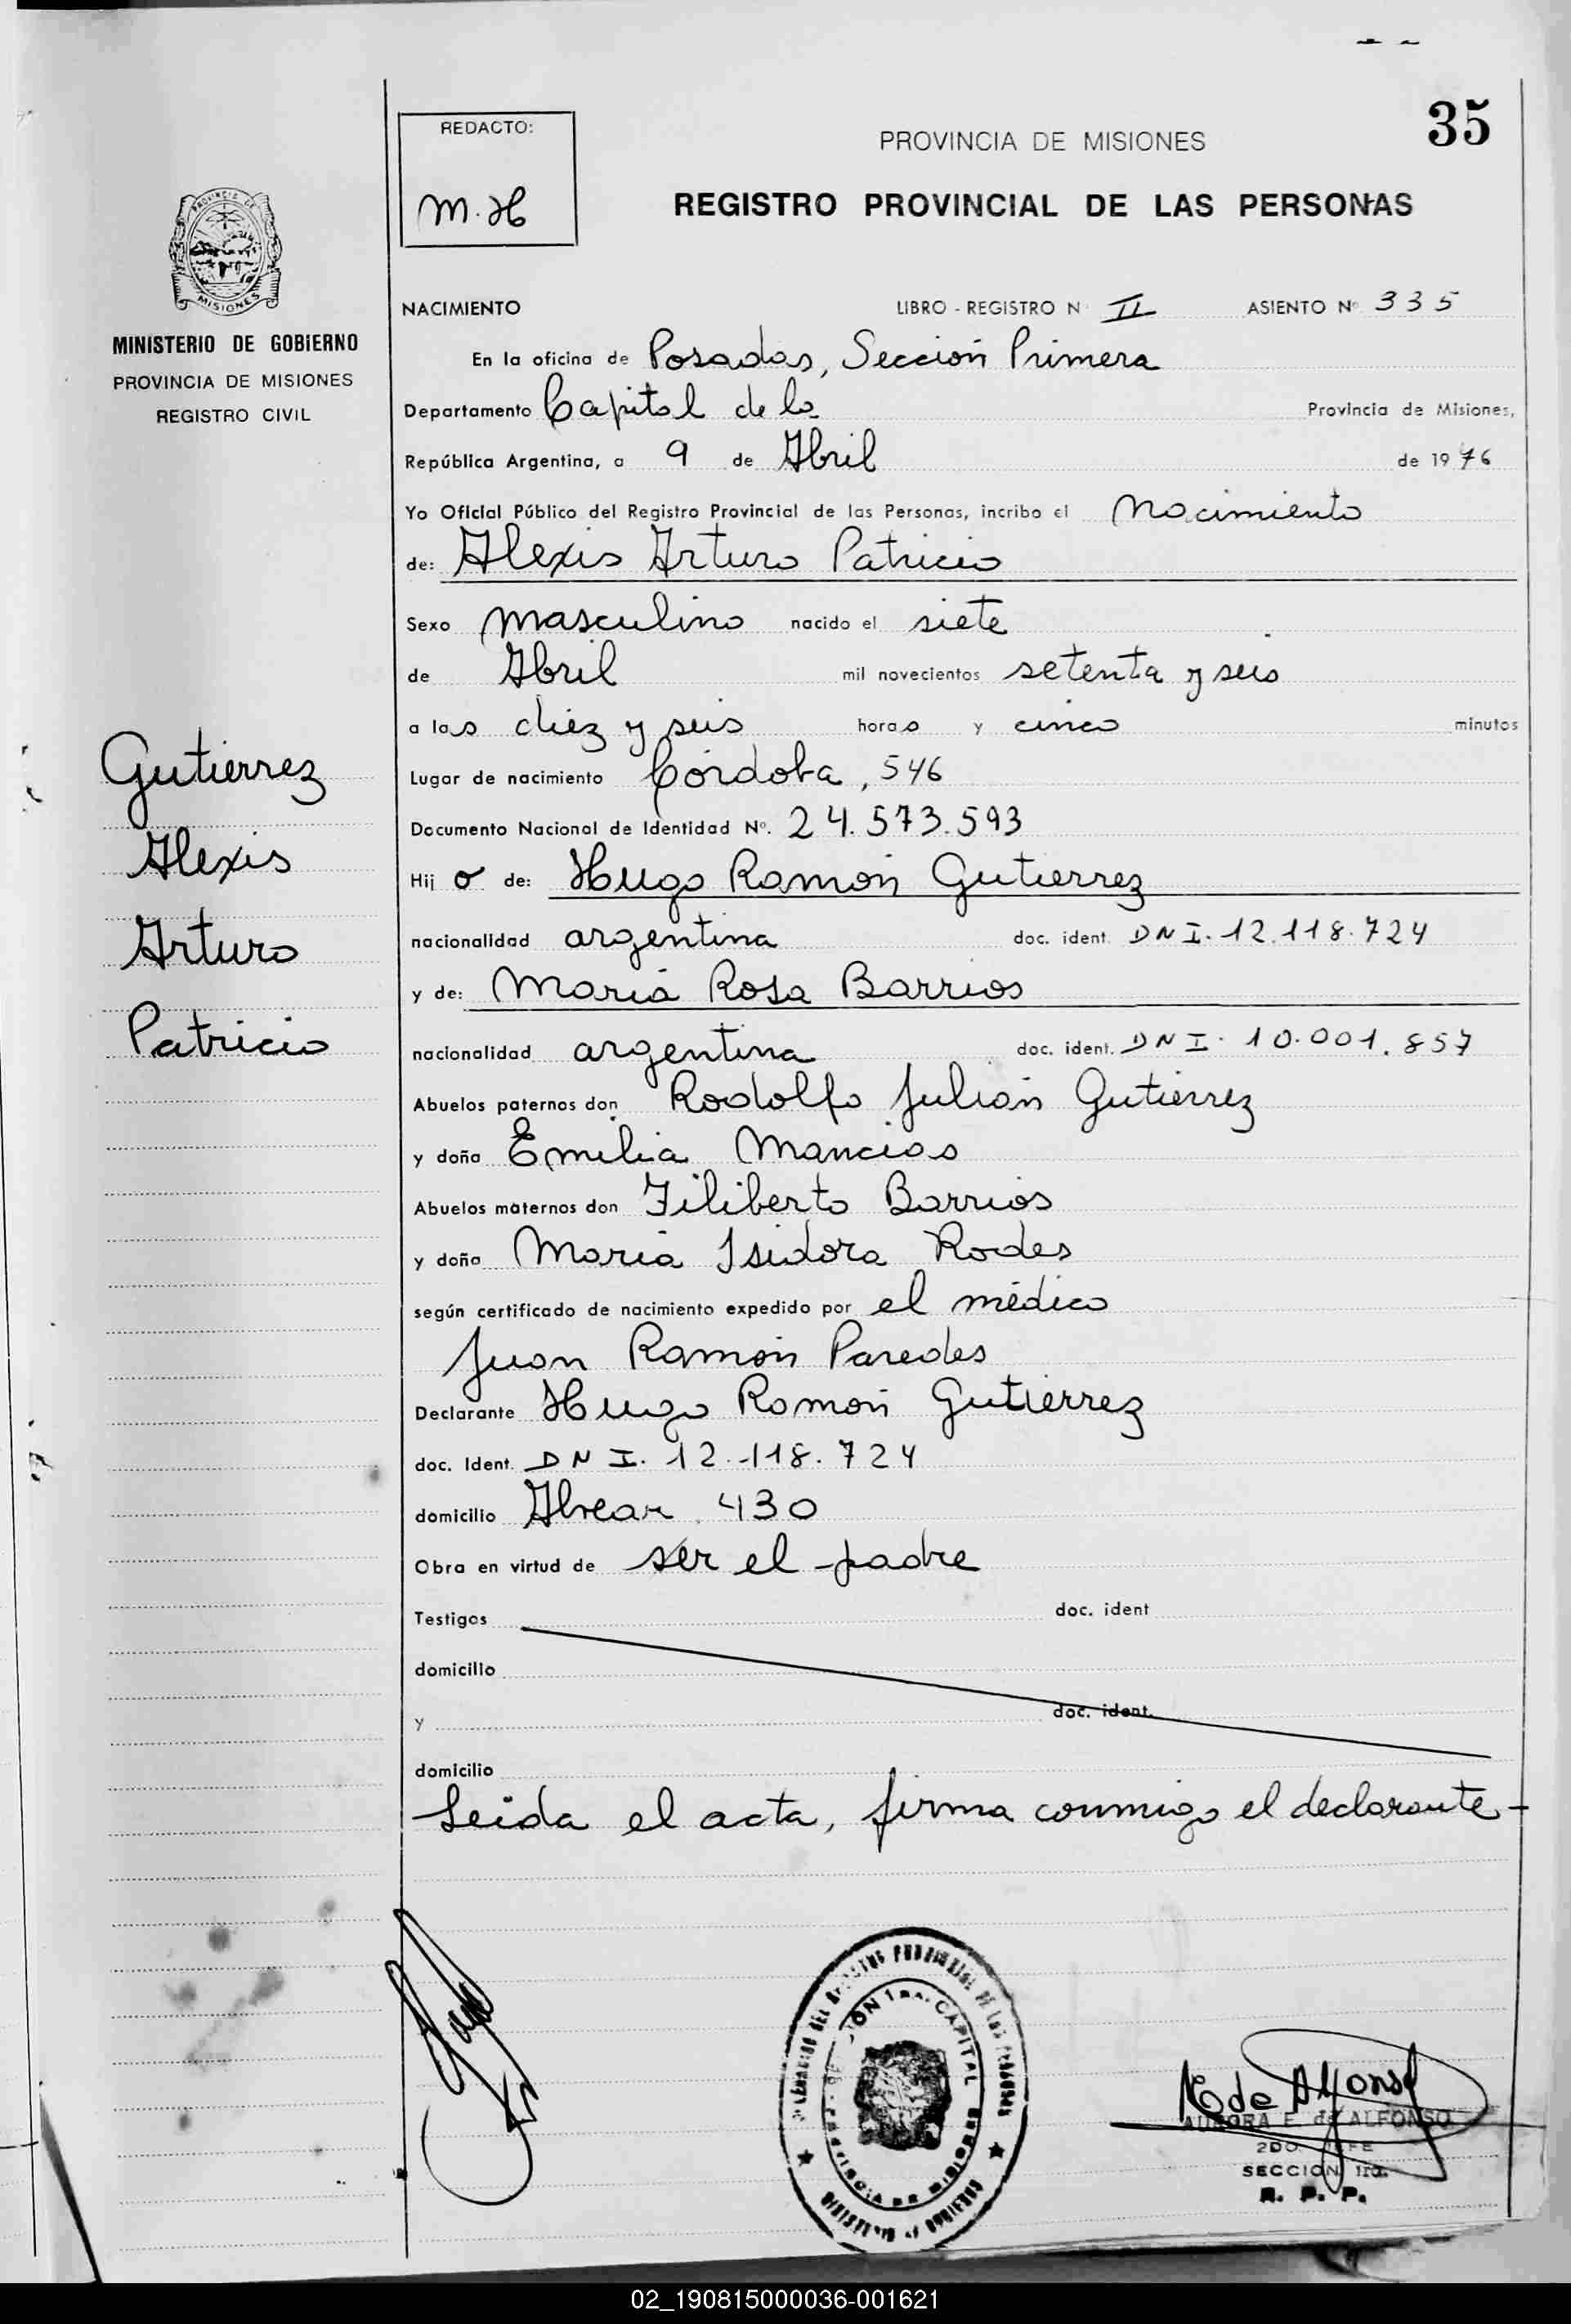 35
REDACTO:
M.H
PROVINCIA DE MISIONES
REGISTRO PROVINCIAL DE LAS PERSONAS
MISIONES
MINISTERIO DE GOBIERNO
PROVINCIA DE MISIONES
REGISTRO CIVIL
NACIMIENTO LIBRO - REGISTRO N II ASIENTO Nº 335
En la oficina de Posadas, Sección Primera
Departamento Capital de la Provincia de Misiones,
República Argentina, a 9 de Abril de 1976
Yo Oficial Público del Registro Provincial de las Personas, incribo el Nacimiento
de: Alexis Arturo Patricio
Sexo masculino nacido el siete
de Abril mil novecientos setenta y seis
a las diez y seis horas y cinco minutos
Lugar de nacimiento Córdoba, 546
Documento Nacional de Identidad Nº. 24.573.593
Hijo de: Hugo Ramón Gutierrez
nacionalidad argentina doc. ident. DNI. 12.118.724
y de: María Rosa Barrios
nacionalidad argentina doc. ident. DNI. 10.001.857
Abuelos paternos don Rodolfo Julián Gutiérrez
y doña Emilia Mancias
Abuelos maternos don Filiberto Barrios
y doña María Isidora Rodes
según certificado de nacimiento expedido por el médico
Juan Ramón Paredes
Declarante Hugo Ramón Gutiérrez
doc. Ident. DNI. 12.118.724
domicilio Alvear 430
Obra en virtud de ser el padre
Testigos doc. ident
domicilio
y doc. ident.
domicilio
Leida el acta, firma conmigo el declarante-
Gutiérrez
Alexis
Arturo
Patricio
CAPITAL
PROVINCIA DE MISIONES
MINISTERIO DE GOBIERNO
E de Alfonso
AURORA E. de ALFONSO
2DO. JEFE
SECCION 1ra.
R. P. P.
02_190815000036-001621